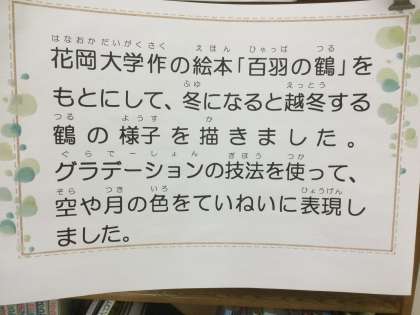 はなおかだいがくさく えほん ひゃっぱ つる
花岡大学作の絵本「百羽の鶴」を
ふゆ えっとう
もとにして、冬になると越冬する
つる ようす か
鶴の様子を描きました。
ぐらでーしょん ぎほう つか
グラデーションの技法を使って、
そら つき いろ ひょうげん
空や月の色をていねいに表現し
ました。